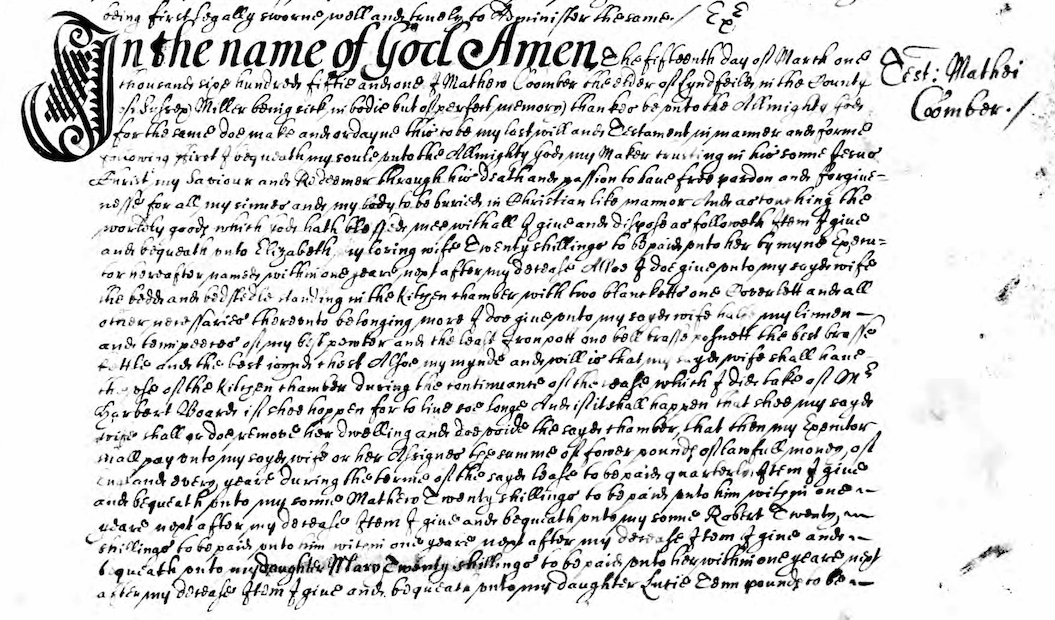 being first legally sworne well and truely to Administer the same./ Exᵗ
In the name of God Amen The fifteenth day of March one
Test: Mathei
Coomber./
thousand sixe hundred fiftie and one I Mathew Coomber the elder of Lyndfeild in the County
of Sussex Miller being sick in bodie but of perfect memory thankes be unto the Allmighty god
for the same doe make and ordayne this to be my last will and Testament in manner and forme
following First I bequeath my soule unto the Allmighty God my Maker trusting in his sonne Jesus
Christ my Saviour and Redeemer through his death and passion to have free pardon and forgive=
nesse for all my sinnes and my body to be buried in Christian like manner And as touching the
worldly goods which god hath blessed mee withall I give and dispose as followeth Item I give
and bequeath unto Elizabeth my loving wife Twenty shillings to be paid unto her by myne Execu=
tor hereafter named within one yeare next after my decease Alsoe I doe give unto my sayd wife
the bedd and bedstedle standing in the kitchen chamber with two blancketts one Coverlett and all
other necessaries thereunto belonging more I doe give unto my sayd wife halfe my linnen
and tenn peeces of my best pewter and the least Iron pott one bell brasse posnett the best brasse
kettle and the best joyned chest Alsoe my mynde and will is that my sayd wife shall have
the use of the kitchen chamber during the continuance of the lease which I did take of Mʳ
Harbert Board if shee happen for to live soe longe And if it shall happen that shee my sayd
wife shall or doe remove her dwelling and doe voide the sayd chamber, that then my Executor
shall pay unto my sayd wife or her Assignes the summe of fower pounds of lawfull money of
England every yeare during the terme of the sayd lease to be paid quarterly Item I give
and bequeath unto my sonne Mathew Twenty shillings to be paid unto him within one
yeare next after my decease Item I give and bequeath unto my sonne Robert Twenty
shillings to be paid unto him within one yeare next after my decease Item I give and
bequeath unto my daughter Mary Twenty shillings to be paid unto her within one yeare next
after my decease Item I give and bequeath unto my daughter Lucie Tenn pounds to be